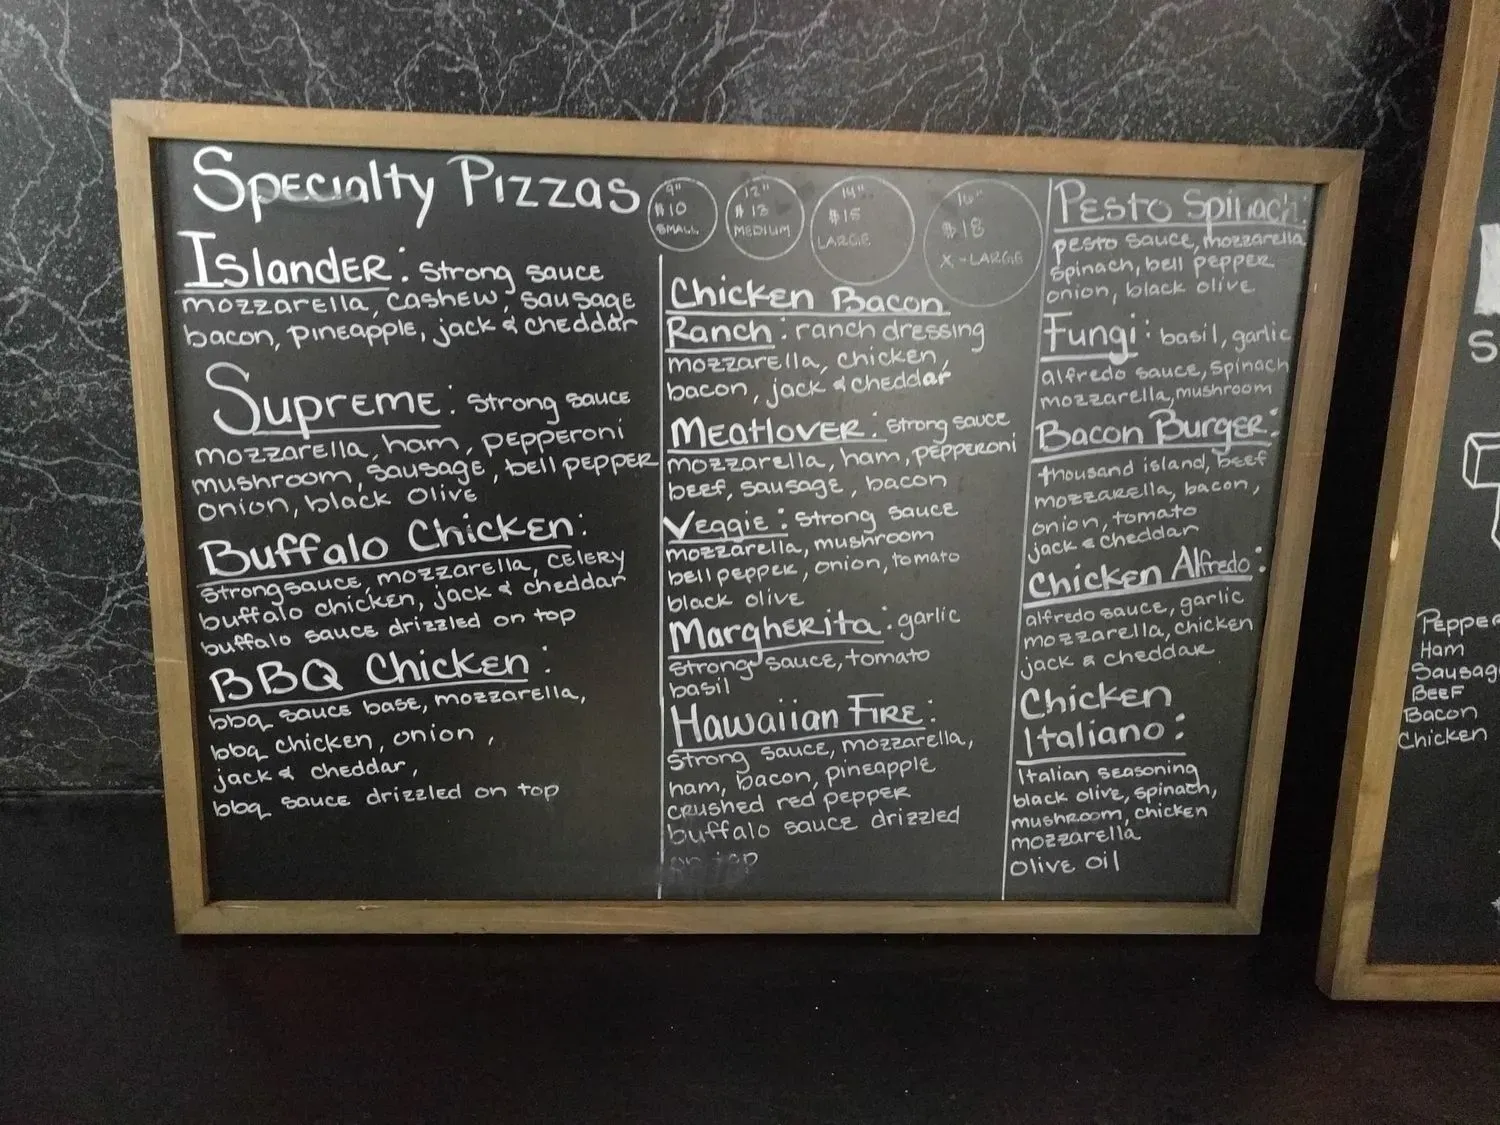 Specialty Pizzas
Islander: strong sauce
mozzarella, cashew, sausage
bacon, pineapple, jack & cheddar
Supreme: strong sauce
mozzarella, ham, pepperoni
mushroom, sausage, bell pepper
onion, black olive
Buffalo Chicken:
strong sauce, mozzarella, celery
buffalo chicken, jack & cheddar
buffalo sauce drizzled on top
BBQ Chicken:
bbq sauce base, mozzarella,
bbq chicken, onion,
jack & cheddar,
bbq sauce drizzled on top
9"
$10
SMALL
12"
$13
MEDIUM
14"
$15
LARGE
16"
$18
X-LARGE
Chicken Bacon
Ranch: ranch dressing
mozzarella, chicken,
bacon, jack & cheddar
Meatlover: strong sauce
mozzarella, ham, pepperoni
beef, sausage, bacon
Veggie: strong sauce
mozzarella, mushroom
bell pepper, onion, tomato
black olive
Margherita: garlic
strong sauce, tomato
basil
Hawaiian Fire:
strong sauce, mozzarella,
ham, bacon, pineapple
crushed red pepper
buffalo sauce drizzled
on top
Pesto Spinach:
pesto sauce, mozzarella
spinach, bell pepper
onion, black olive
Fungi: basil, garlic
alfredo sauce, spinach
mozzarella, mushroom
Bacon Burger:
thousand island, beef
mozzarella, bacon,
onion, tomato
jack & cheddar
Chicken Alfredo:
alfredo sauce, garlic
mozzarella, chicken
jack & cheddar
Chicken
Italiano:
Italian seasoning
black olive, spinach,
mushroom, chicken
mozzarella
olive oil
S
Peppe
Ham
Sausag
Beef
Bacon
Chicken